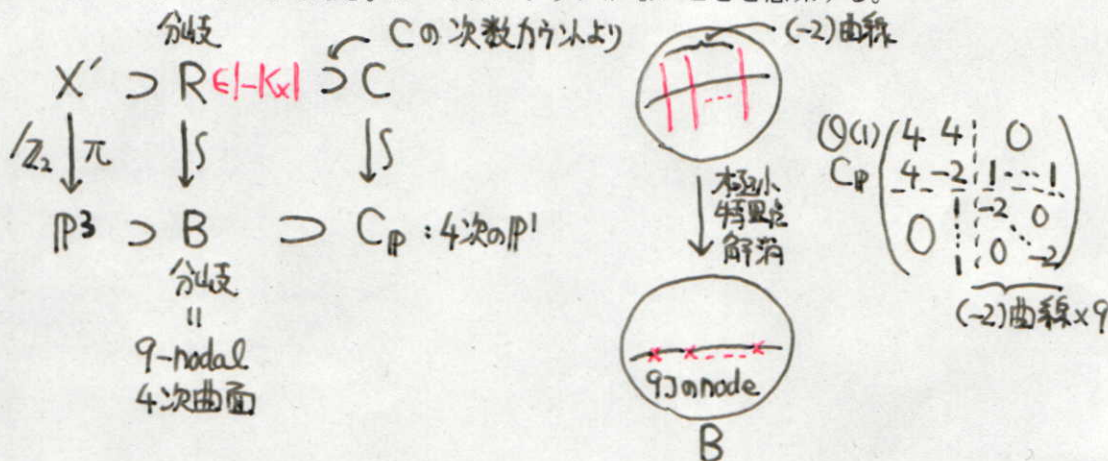 分岐
Cの次数カウントより
X' ⊃ R ∈|-Kx| ⊃ C
/ℤ₂ ↓π ↓∫ ↓∫
ℙ³ ⊃ B ⊃ Cℙ : 4次のℙ¹
分岐
||
9-nodal
4次曲面
(-2)曲線
極小
特異点
解消
9コのnode
B
O(1) 4 4 0
Cℙ 4 -2 1 ... 1
0 1 -2 0
⋮ ⋱
1 0 -2
(-2)曲線×9